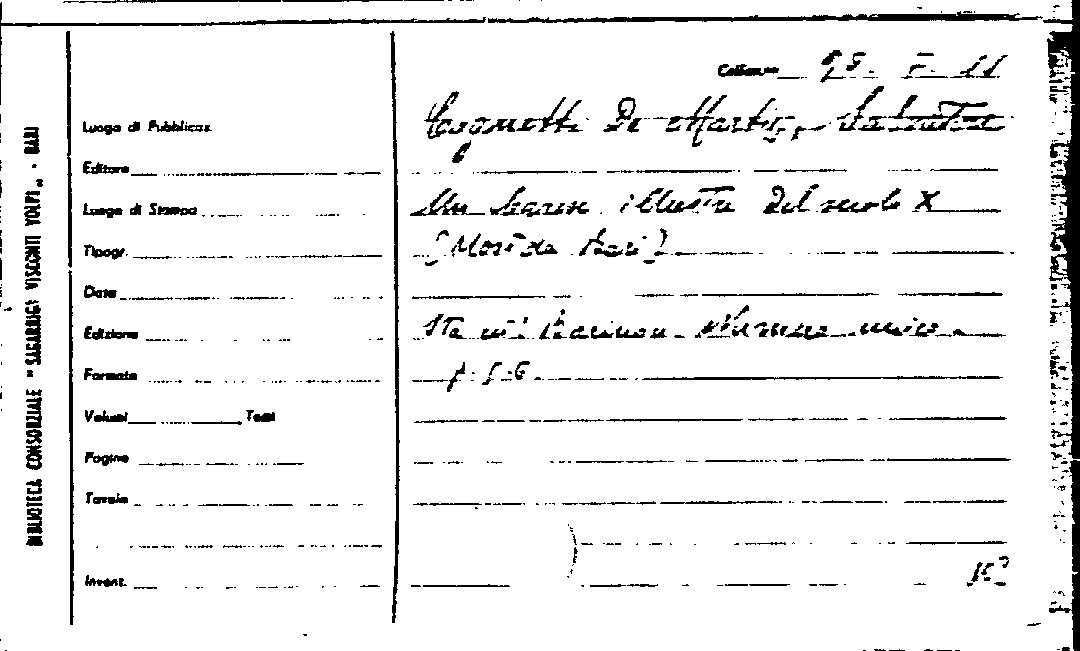 BIBLIOTECA CONSORZIALE "SAGARRIGA VISCONTI VOLPI" - BARI
Collocaz. 95. F. 11
Luogo di Pubblicaz.
Editore
Luogo di Stampa
Tipogr.
Data
Edizione
Formato
Volumi Tomi
Pagine
Tavole
Invent.
Cognetti De Martiis, Salvatore
Un barese illustre del secolo X
(Mosè da Bari)
Sta in: Numero unico.
p. 5-6.